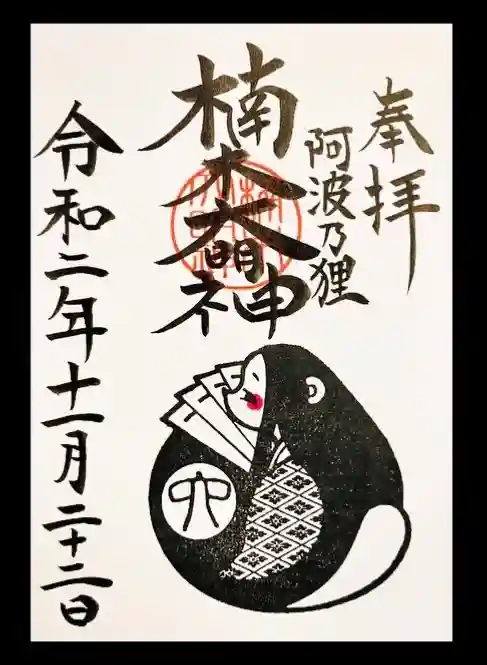 奉拝
阿波乃狸
楠木大明神
令和二年十一月二十二日
六